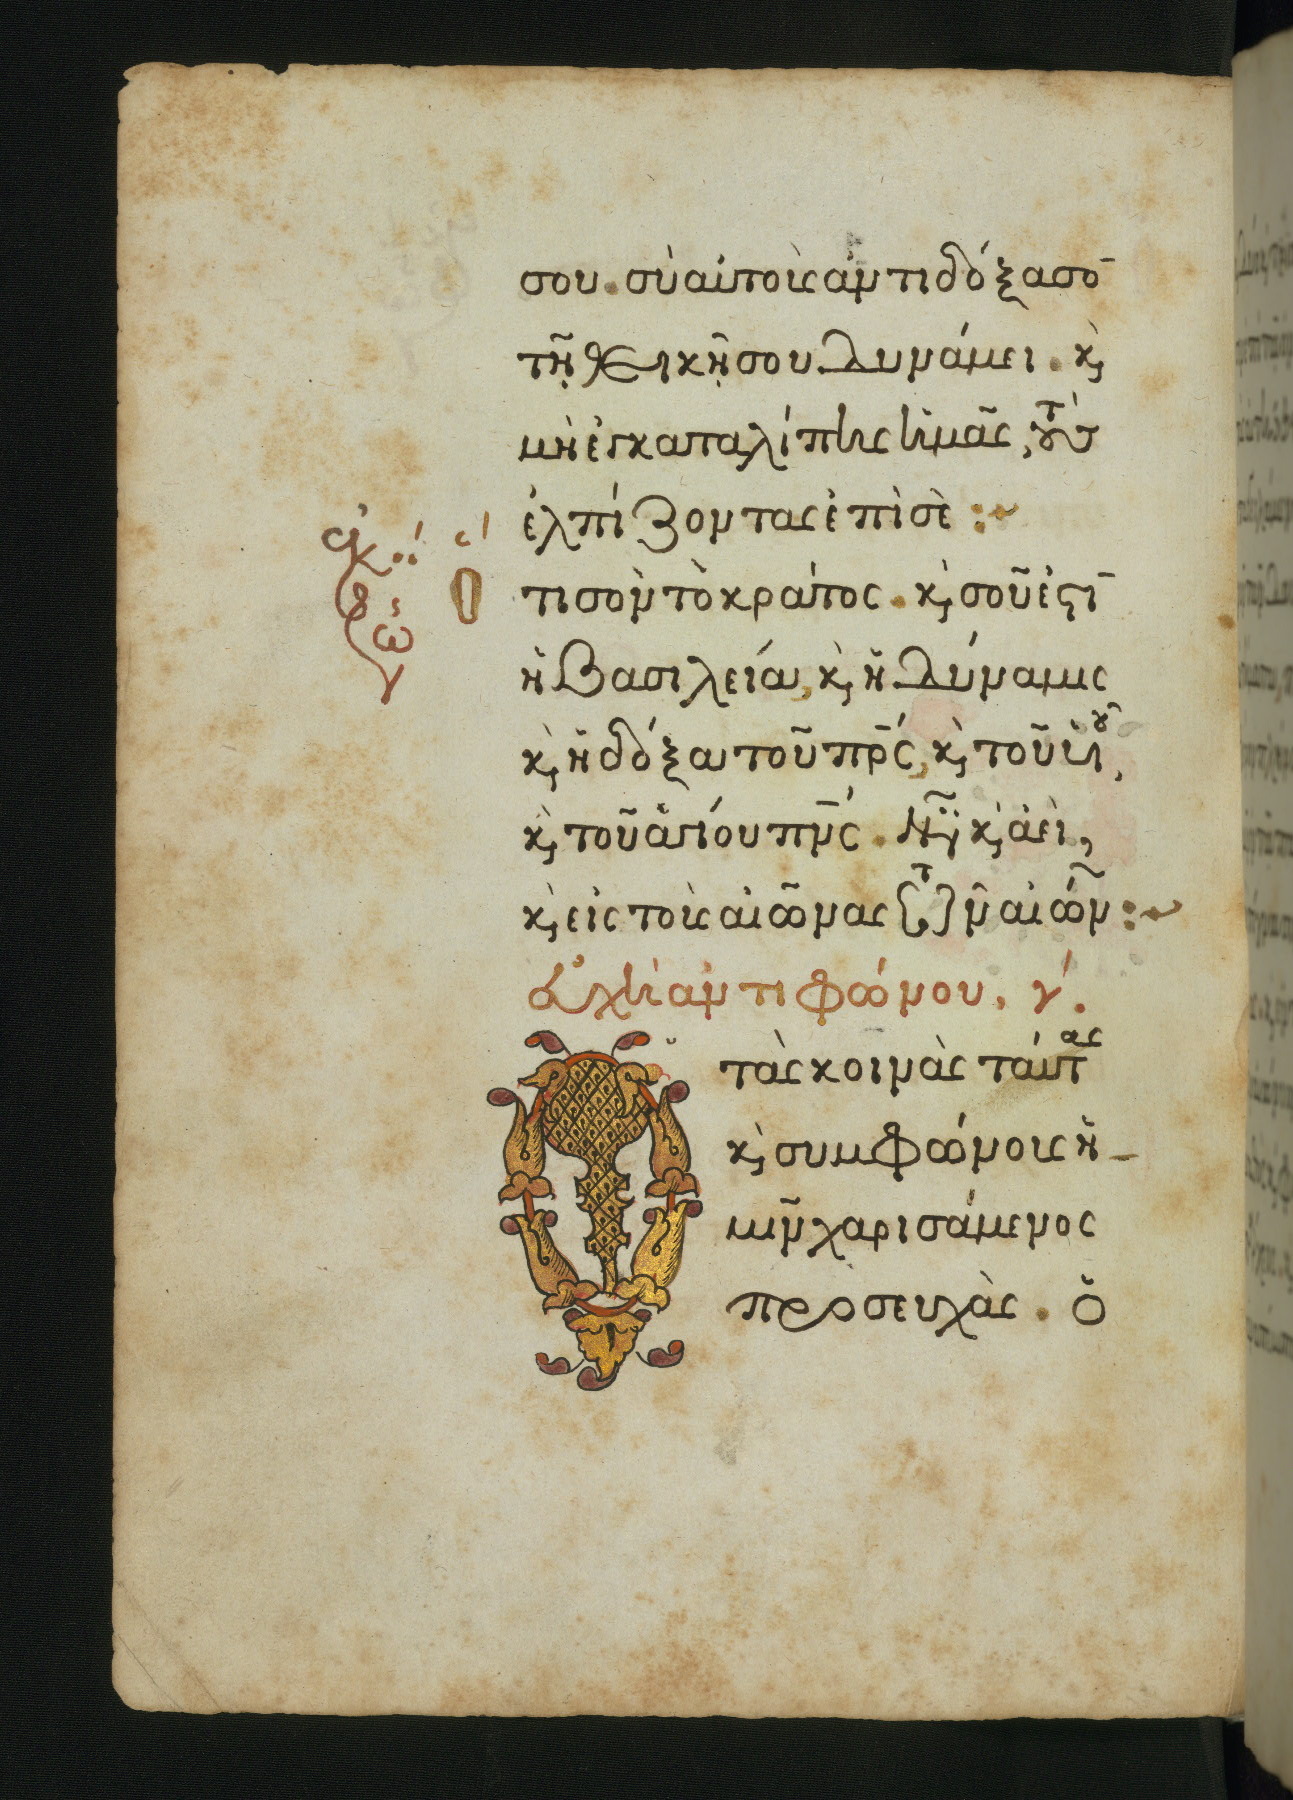 σου. σὺ αὐτοὺς ἀντιδόξασο̄
τῇ θεϊκῇ σου δυνάμει. κ̀
μὴ ἐγκαταλίπῃς ἡμᾶς, τοὺσ
ἐλπίζοντας ἐπὶ σὲ :~
Ὅτι σὸν τὸ κράτος. κ̀ σοῦ ἐστῑ
ἡ βασιλεία, κ̀ ἡ δύναμις
κ̀ ἡ δόξα τοῦ πρ̅ς, κ̀ τοῦ υἱοῦ,
κ̀ τοῦ ἁγίου πν̅ς. νῦν κ̀ ἀεὶ,
κ̀ εἰς τοὺς αἰῶνας τῶν αἰών :~
ἐκφώ
εὐχὴ ἀντιφώνου, γ΄.
Ὁ τὰς κοινὰς ταύτας
κ̀ συμφώνους ἡ
μῖν χαρισάμενος
προσευχὰς. ὁ